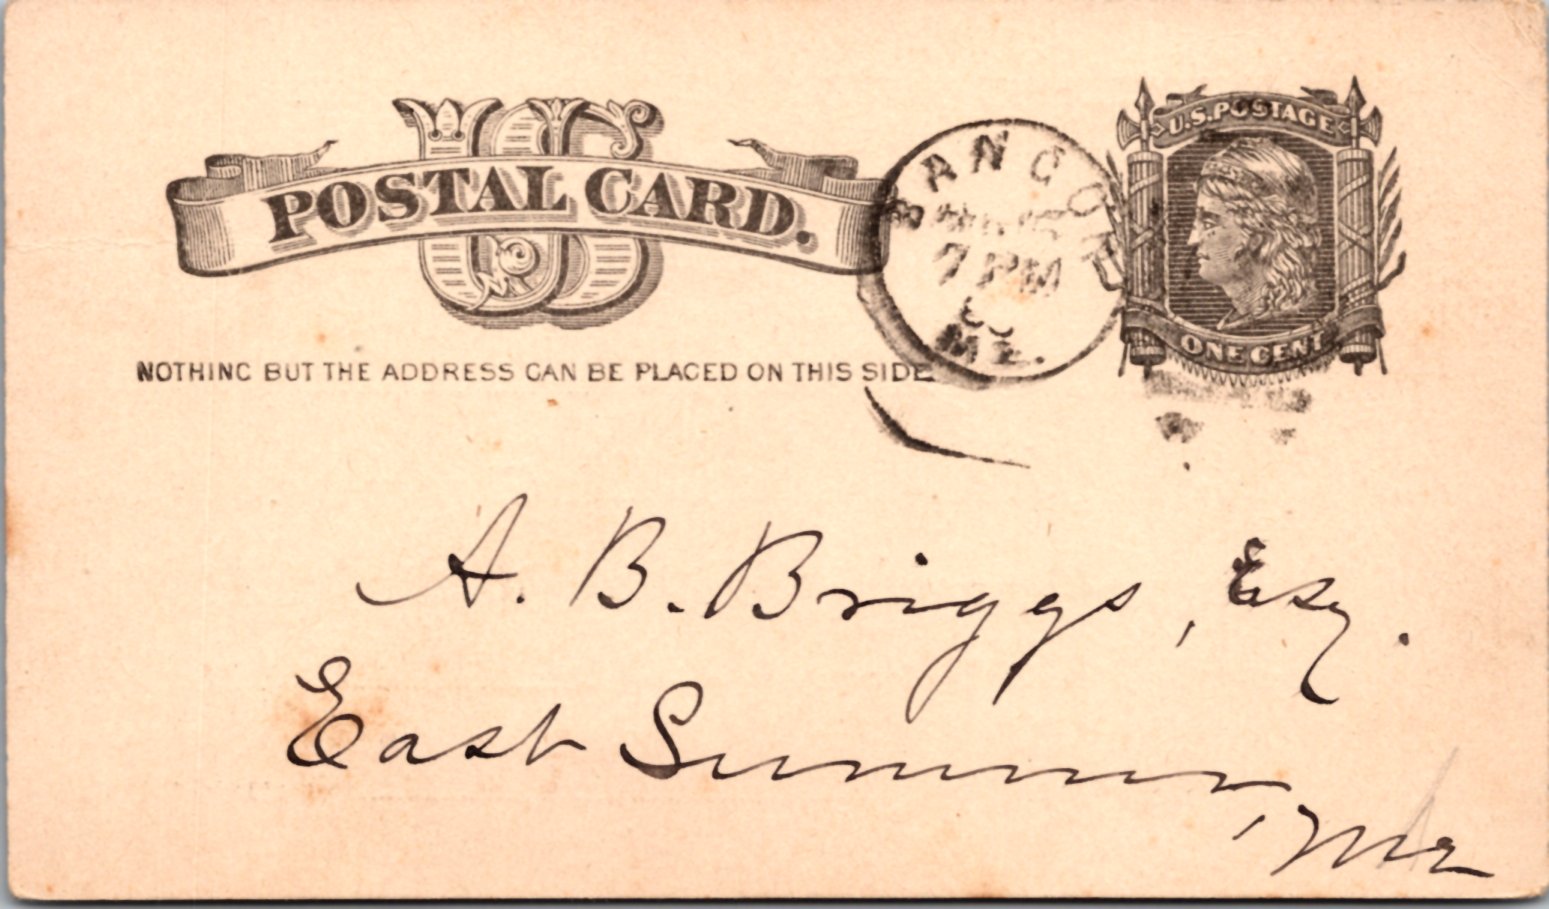 US
POSTAL CARD.
NOTHING BUT THE ADDRESS CAN BE PLACED ON THIS SIDE
BANGOR
7 PM
ME.
U.S. POSTAGE
ONE CENT
A. B. Briggs, Esq.
East Sumner,
Me